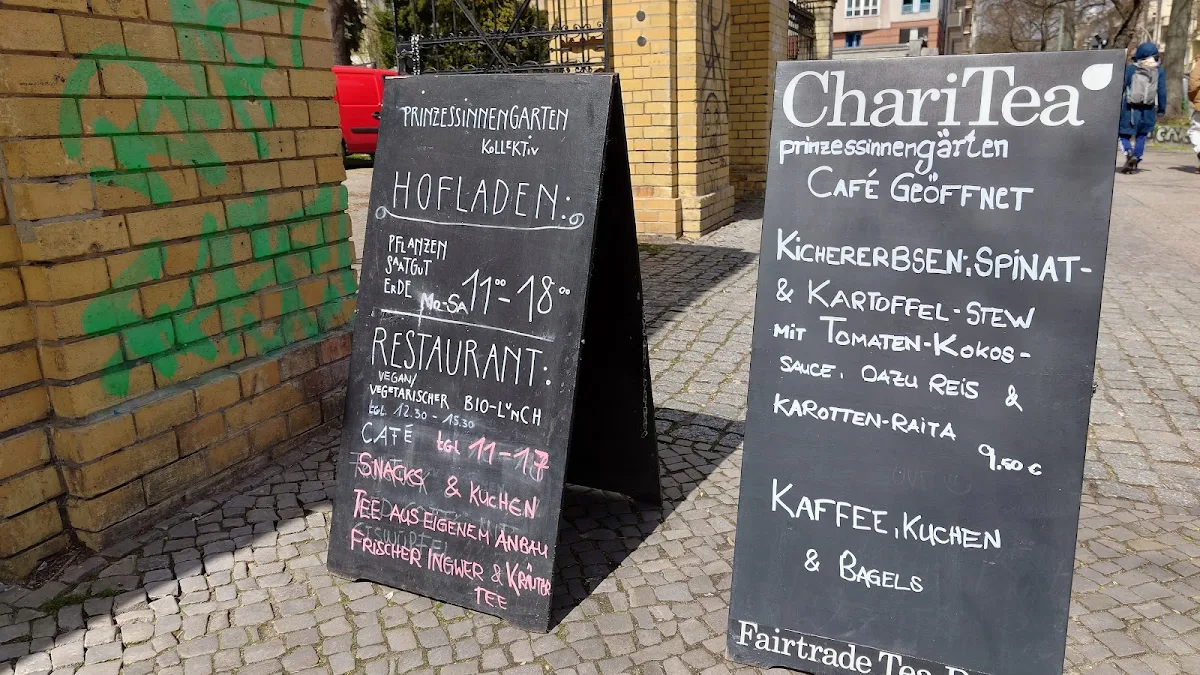 PRINZESSINNENGARTEN
KOLLEKTIV
HOFLADEN:
PFLANZEN
SAATGUT
ERDE
Mo-SA 11⁰⁰-18⁰⁰
RESTAURANT:
VEGAN/
VEGETARISCHER BIO-LUNCH
tgl 12.30 - 15.30
CAFÉ tgl 11-17
SNACKS & KUCHEN
TEE AUS EIGENEM ANBAU
FRISCHER INGWER & KRÄUTER
TEE
ChariTea
prinzessinnengärten
CAFÉ GEÖFFNET
KICHERERBSEN, SPINAT-
& KARTOFFEL-STEW
MIT TOMATEN-KOKOS-
SAUCE, DAZU REIS &
KAROTTEN-RAITA
9.50 €
KAFFEE, KUCHEN
& BAGELS
Fairtrade Tea